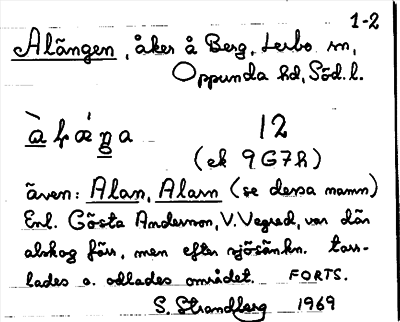 1-2
Alängen, åker å Berg, Lerbo sn,
Oppunda hd, Söd. l.
12
(ek 9G7h)
även: Alan, Alarn (se dessa namn)
Enl. Gösta Andersson, V. Vegred, var där
alskog förr, men efter sjösänkn. torr-
lades o. odlades området. FORTS.
S. Strandberg 1969